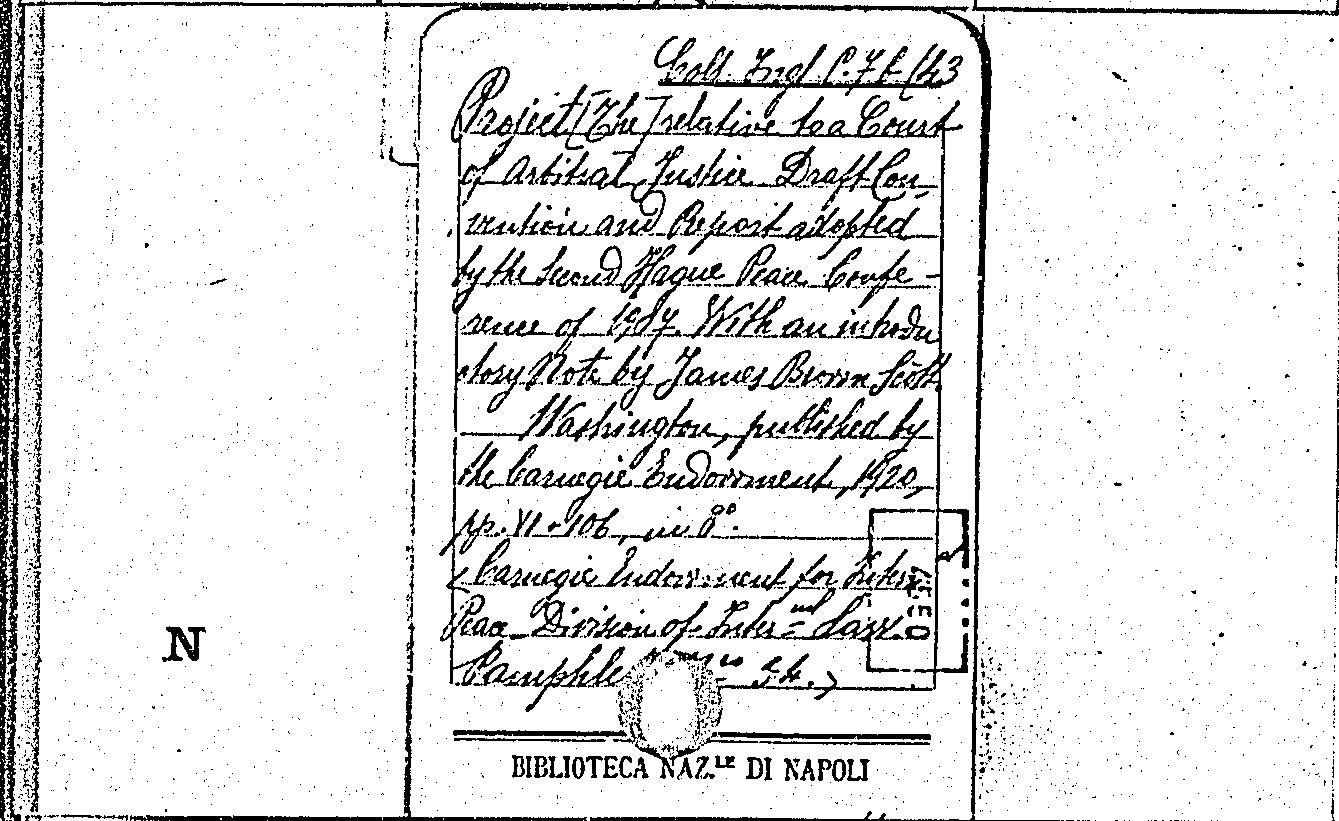 Coll. Ingl C. 7 f (43
Project [The] relative to a Court
of Arbitral Justice. Draft Con-
vention and Report adopted
by the Second Hague Peace Confe-
rence of 1907. With an introdu
ctory Note by James Brown Scott.
Washington, published by
the Carnegie Endowment, 1920,
pp. VI-106, in 8°.
(Carnegie Endowment for Intern
Peace Division of Inter=nal Law.
Pamphle 34.)
N
BIBLIOTECA NAZ.LE DI NAPOLI